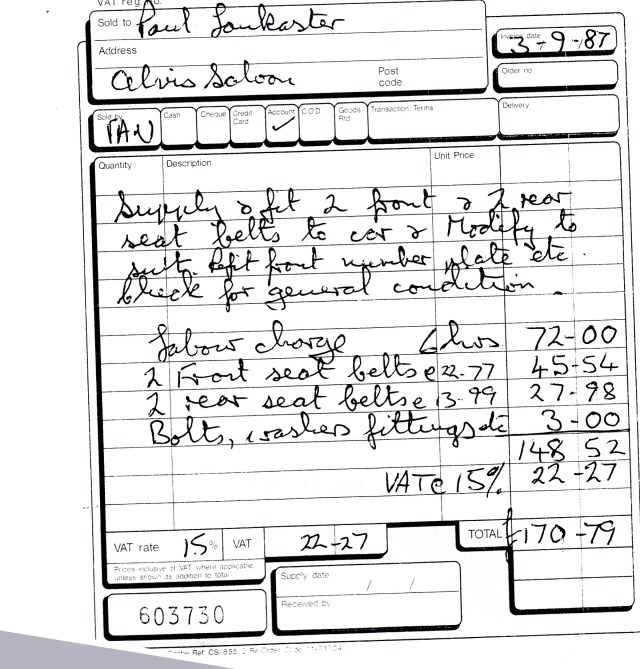 VAT reg. No.
Sold to Paul Lonkaster
Invoice date 3-9-87
Address
Alvis Saloon
Post code
Order no
Sold by Cash Cheque Credit Card Account ✓ C.O.D Goods Rtd Transaction Terms Delivery
Quantity Description Unit Price
Supply & fit 2 front & 2 rear
seat belts to car & Modify to
suit. Refit front number plate etc.
check for general condition.
Labour charge 6 hrs 72-00
2 Front seat belts @ 22-77 45-54
2 rear seat belts @ 13-99 27-98
Bolts, washers fittings etc 3-00
148 52
VAT @ 15% 22-27
VAT rate 15% VAT 22-27 TOTAL £170-79
Prices inclusive of VAT where applicable
unless shown as addition to total
Supply date / /
Received by
603730
Ref CS/855 2 Re-Order Code